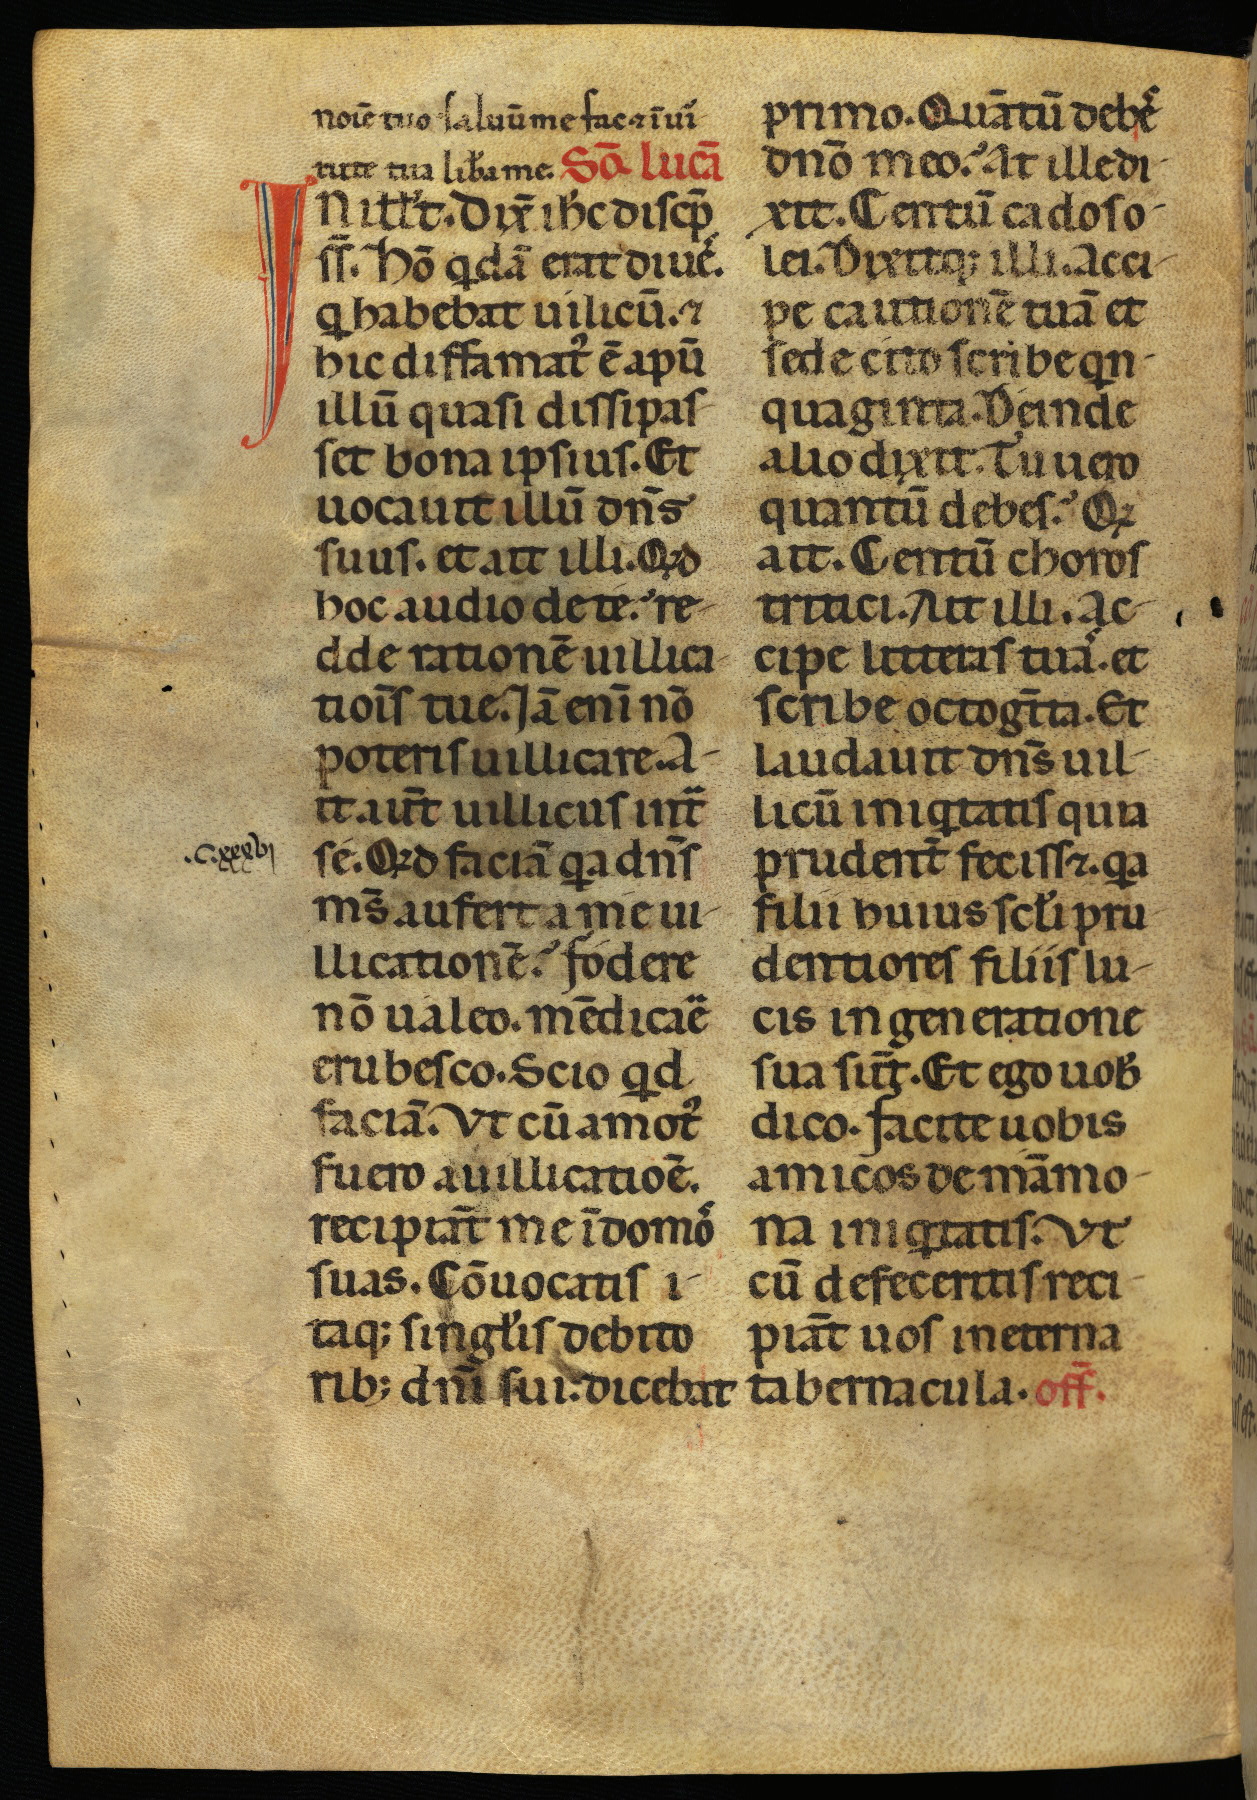 noīe tuo saluū me fac ⁊ ī uir
tute tua lib̄a me. Scd̄ Lucā
IN ill̄ t̄. Dix̄ ih̄c discip̄
ss̄. Hō qdā erat diues.
q habebat uilicū. ⁊
hic diffamat᷒ ē apū
illū quasi dissipas
set bona ipsius. Et
uocauit illū dn̄s
suus. et ait illi. Qꝛd
hoc audio de te. re-
dde rationē uillica-
tiōis tue. Jā enī nō
poteris uillicare. A-
it aut̄ uillicus int̄
se. Qꝛd faciā qa dn̄s
ms̄ aufert a me ui-
llicationē. fodere
nō ualeo. mēdicare
erubesco. Scio qd
faciā. Vt cū amot᷒
fuero a uillicatiōe.
recipiāt me ī domos
suas. Cōuocatis i-
taq; singl̄is debito
rib; dn̄i sui. dicebat
.c.xxxvi
primo. Quātū debes
dnō meo. At ille di-
xit. Centū cados o-
lei. Dixitq; illi. Acci-
pe cautionē tuā et
sede cito scribe qn-
quaginta. Deinde
alio dixit. Tu uero
quantū debes. Qꝛ
ait. Centū choros
tritici. Ait illi. Ac-
cipe litteras tuas. et
scribe octogīta. Et
laudauit dn̄s uil-
licū iniqtatis quia
prudent̄ feciss⁊. qa
filii huius scl̄i pru
dentiores filiis lu-
cis in generatione
sua sūt. Et ego uob̄
dico. facite uobis
amicos de māmo-
na iniqtatis. Vt
cū defeceritis reci-
piāt uos in eterna
tabernacula. off̄.